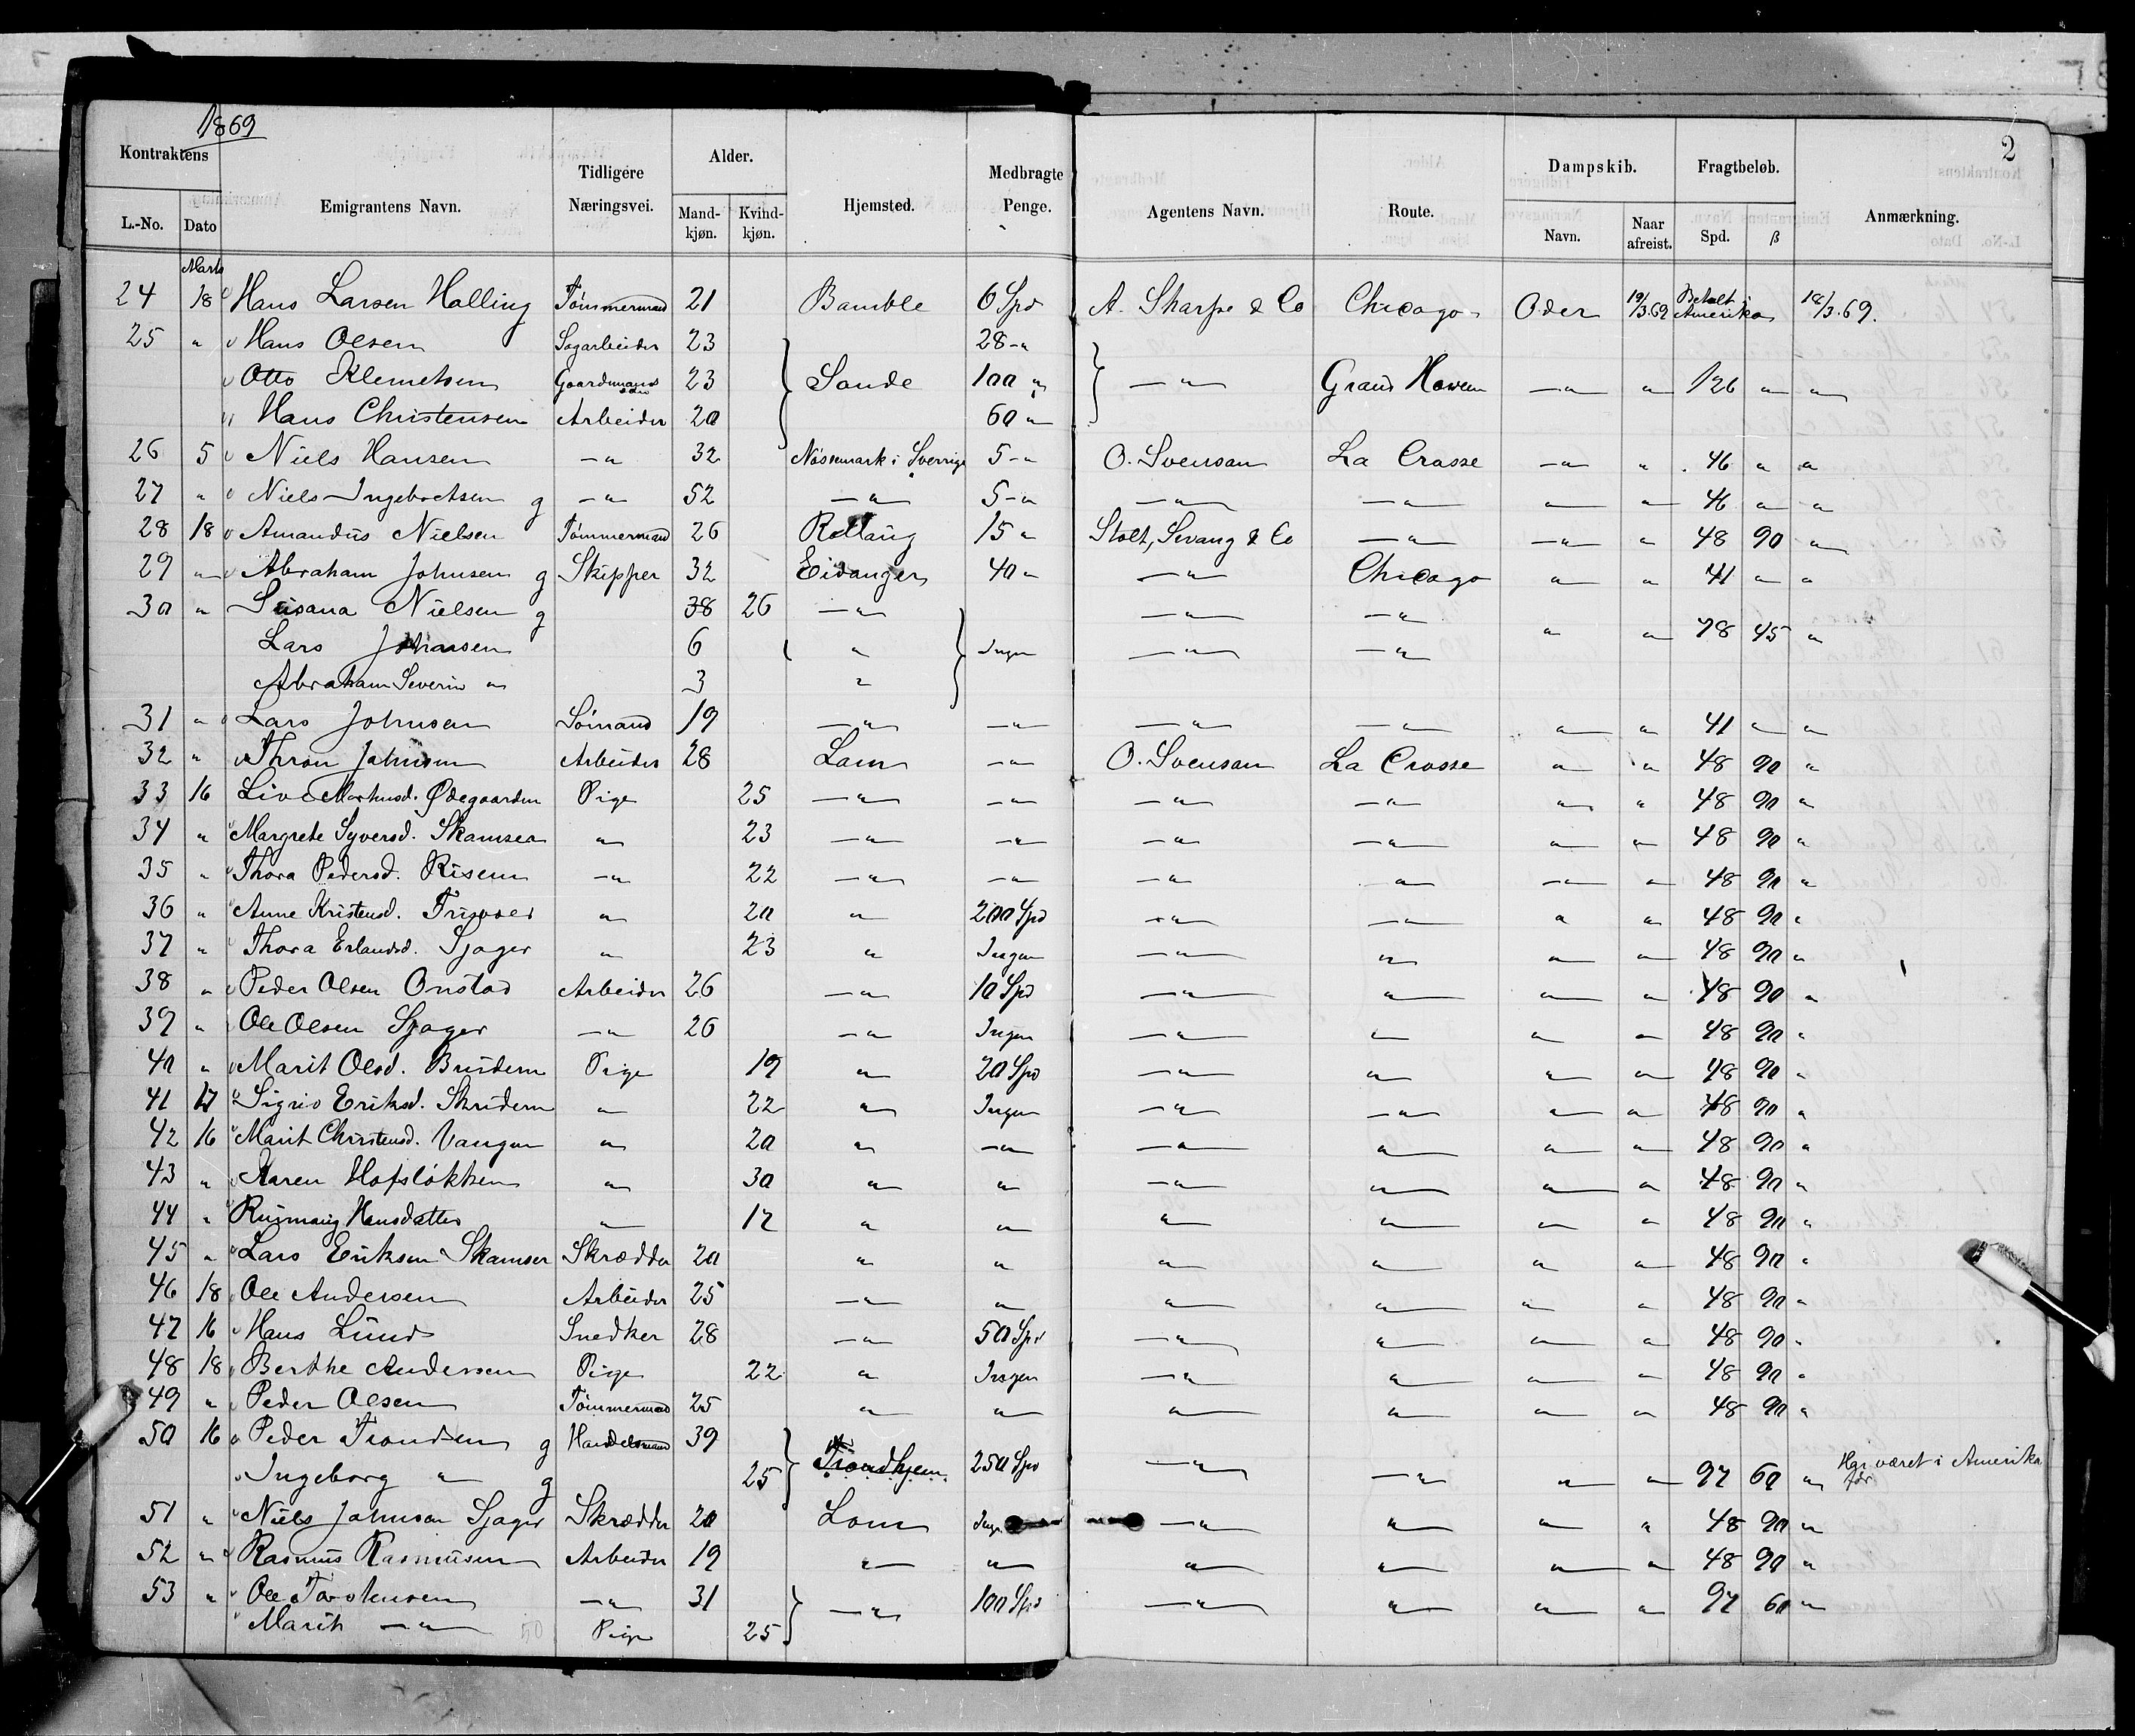 1869
2
Kontraktens Emigrantens Navn. Tidligere Næringsvei. Alder. Hjemsted. Medbragte Penge. Agentens Navn. Route. Dampskib. Fragtbeløb. Anmærkning.
L.-No. Dato Mand-kjøn. Kvind-kjøn. Navn. Naar afreist. Spd. ß
Marts
24 18 Hans Larsen Halling Tømmermand 21 Bamble 6 Spd A. Sharpe & Co Chicago Oder 19/3.69 Betalt i Amerika 18/3.69.
25 " Hans Olsen Sagarbeider 23 28 - "
Otto Klemetsen Gaardmands søn 23 Sande 100 " — " — Grand Hawen — " — " 126 " "
Hans Christensen Arbeider 20 60 "
26 5 Niels Hansen — " 32 Nössemark i Sverrige 5 - " O. Svensan La Crosse — " — " 46 " "
27 " Niels Ingebretsen g — " 52 — " — 5 - " — " — — " — — " — " 46 " "
28 18 Amandus Nielsen Tømmermand 26 15 " Stolt, Sevang & Co — " — — " — " 48 90 "
29 " Abraham Johnsen g Skipper 32 Eidanger 40 " — " — Chicago " " 41 " "
30 " Susana Nielsen g 38 26 — " — — " — — " —
Lars Johnsen 6 " Ingen — " — — " — " " 78 45 "
Abraham Severin " 3 "
31 " Lars Johnsen Sømand 19 — " — — " — — " — — " — " " 41 " "
32 " Thron Johnsen Arbeider 28 Lom — " O. Svensan La Crosse " " 48 90 "
33 16 Live Ødegaarden Pige 25 — " — — " — — " — — " — " " 48 90 "
34 " Margrete Syversd. Skamsar " 23 — " — — " — — " — — " — " " 48 90 "
35 " Thora Pedersd. Risem — " 22 — " — — " — — " — " — " " 48 90 "
36 " Anne Kristensd. " 20 " 200 Spd — " — — " — " " 48 90 "
37 " Thora Erlandsd. Sjager " 23 " Ingen — " — " " " 48 90 "
38 " Peder Olsen Onstad Arbeider 26 — " 10 Spd — " — " " " 48 90 "
39 " Ole Olsen Sjager — " 26 — " Ingen — " — " " " 48 90 "
40 " Marit Olsd. Pige 19 " 20 Spd — " — " " " 48 90 "
41 17 Sigrid Eriksd. " 22 " Ingen — " — — " — " " 48 90 "
42 16 Marit Christensd. Vangen " 20 " — " — " — " " " 48 90 "
43 " Karen Hofsløkken " 30 " " — " — " " " 48 90 "
44 " Hansdatter " 17 " " " " " " 48 90 "
45 " Lars Eriksen Skamser Skrædder 20 " " " " " " 48 90 "
46 18 Ole Andersen Arbeider 25 — " " " " " " 48 90 "
47 16 Hans Lund Snedker 28 — " 50 Spd — " — " " " 48 90 "
48 18 Berthe Andersen Pige 22 " Ingen — " — " " " 48 90 "
49 " Peder Olsen Tømmermand 25 " " " " " " 48 90 "
50 16 Peder Trondsen g Handelsmand 39 Trondhjem 250 Spd — " — — " — " " 97 60 " Har været i Amerika før
Ingeborg " g 25
51 " Niels Johnsen Sjager Skrædder 20 Lom Ingen — " — " " " 48 90 "
52 " Rasmus Rasmusen Arbeider 19 " " " " " " 48 90 "
53 " Ole Torstensen — " 31 — " 100 Spd — " — " " " 97 60 "
Marit — " — Pige 25